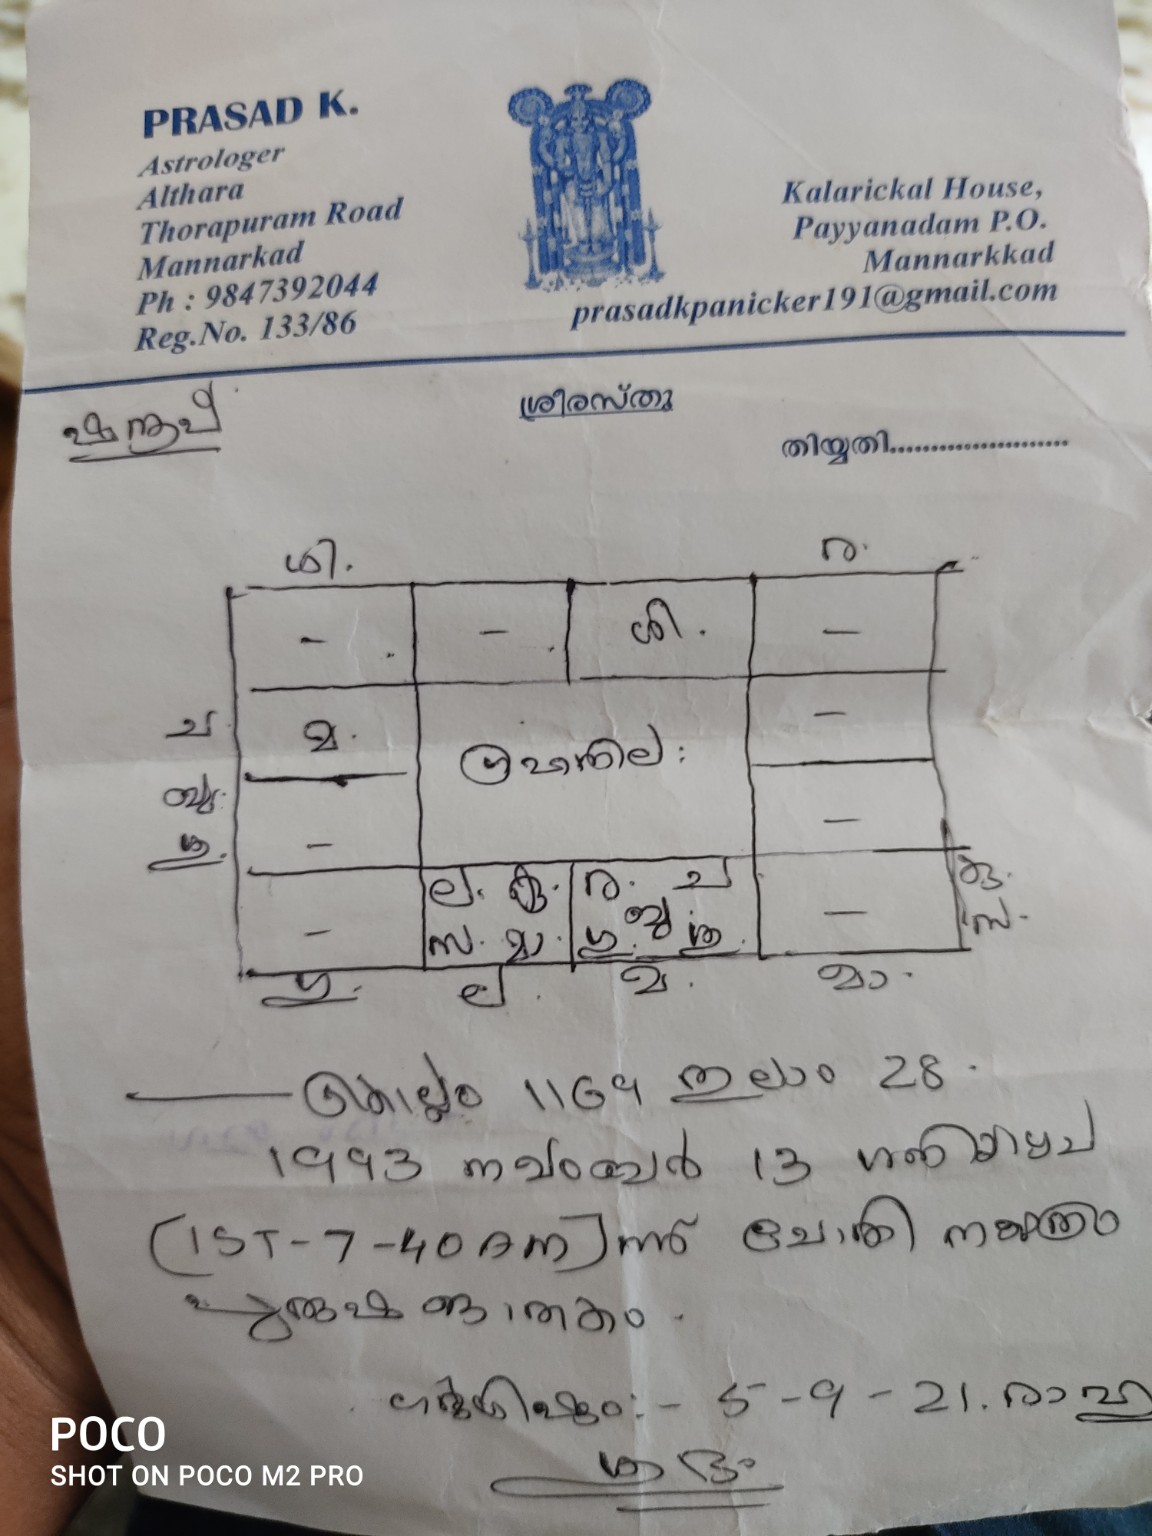 PRASAD K.
Astrologer
Althara
Thorapuram Road
Mannarkad
Ph : 9847392044
Reg.No. 133/86
Kalarickal House,
Payyanadam P.O.
Mannarkkad
prasadkpanicker191@gmail.com
ശ്രീരസ്തു
തിയ്യതി......................
ശി. ര.
- - ശി. -
ച മ. ഗ്രഹനില: -
ബു. - -
ശു.
ല. കു. ര. ച കു.
- സ. മാ. ഗു. ബു. ശു. - സ.
ഗു. ല. മ. മാ.
കൊല്ലം 1169 തുലാം 28.
1993 നവംബർ 13 ശനിയാഴ്ച
(IST-7-40 AM)ന് ചോതി നക്ഷത്രം
പുരുഷ ജാതകം.
ഗർഭശിഷ്ടം:- 5-9-21. രാഹു
ശുഭം
POCO
SHOT ON POCO M2 PRO